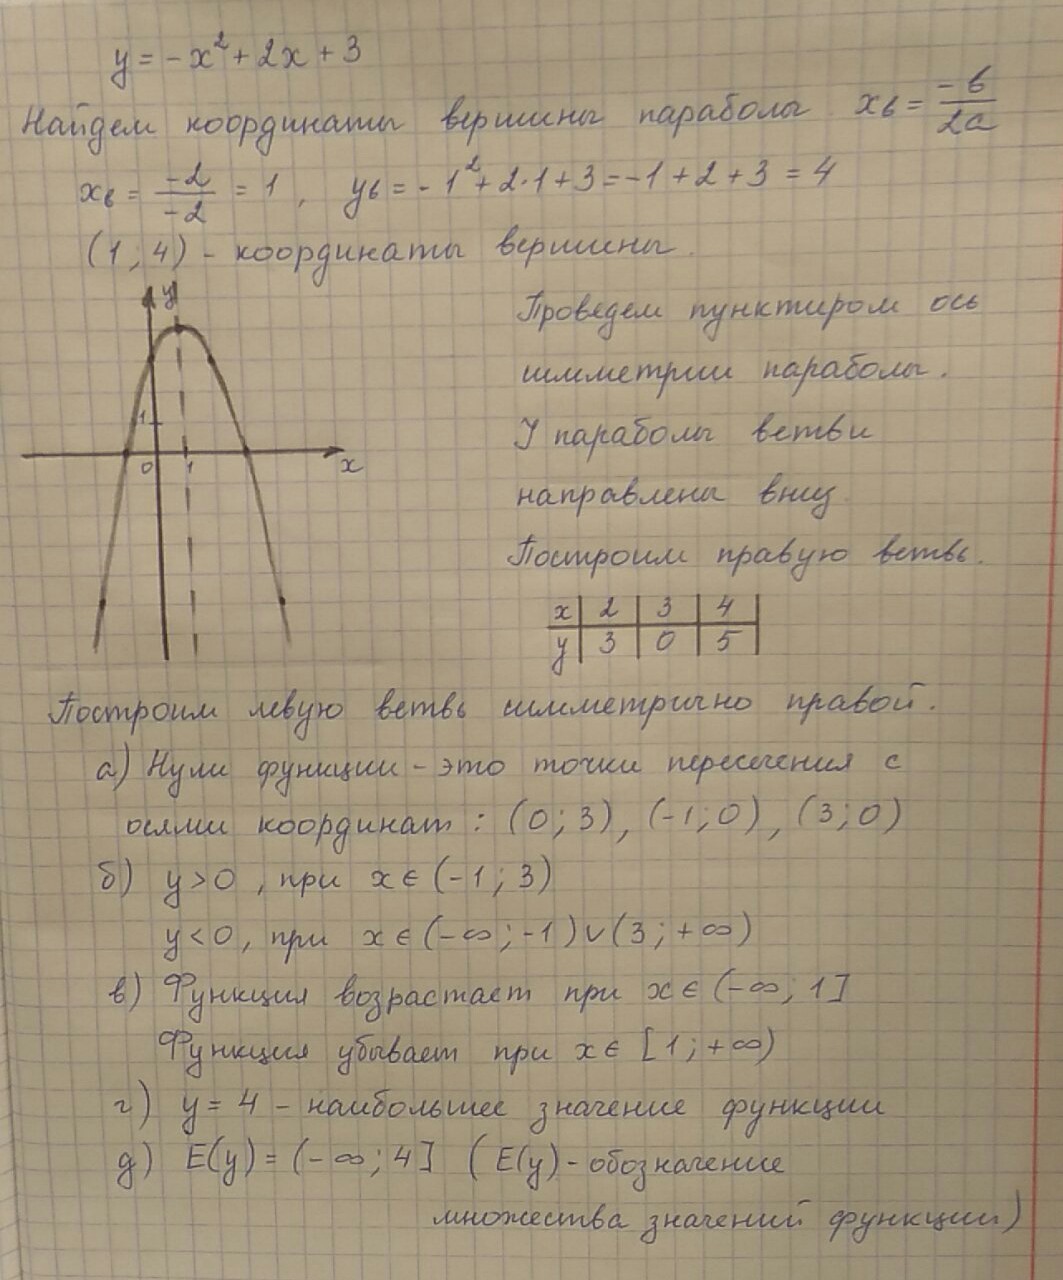 y = -x² + 2x + 3
Найдем координаты вершины параболы xв = -в/2a
xв = -2/-2 = 1, yв = -1² + 2·1 + 3 = -1 + 2 + 3 = 4
(1; 4) - координаты вершины.
y
1
0 1 x
Проведем пунктиром ось
симметрии параболы.
У параболы ветви
направлены вниз.
Построим правую ветвь.
x | 2 | 3 | 4
y | 3 | 0 | 5
Построим левую ветвь симметрично правой.
а) Нули функции - это точки пересечения с
осями координат: (0; 3), (-1; 0), (3; 0)
б) y > 0, при x ∈ (-1; 3)
y < 0, при x ∈ (-∞; -1) ∪ (3; +∞)
в) Функция возрастает при x ∈ (-∞; 1]
Функция убывает при x ∈ [1; +∞)
г) y = 4 - наибольшее значение функции
д) E(y) = (-∞; 4] (E(y) - обозначение
множества значений функции)